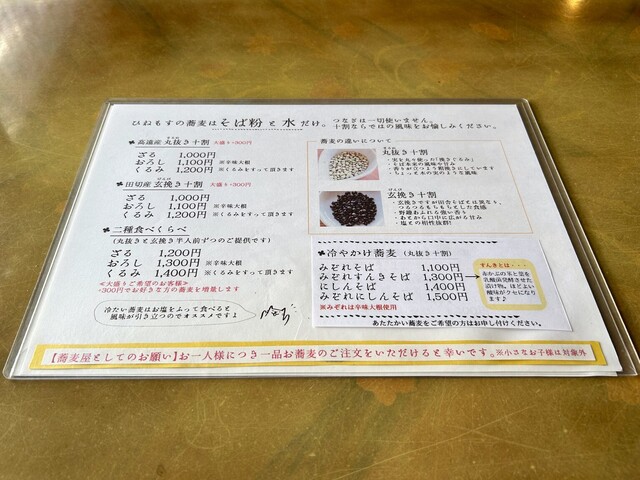 ひねもすの蕎麦はそば粉と水だけ。
つなぎは一切使いません。
十割ならではの風味をお愉しみください。
高遠産 丸抜き十割 大盛り+300円
ざる 1,000円
おろし 1,100円 ※辛味大根
くるみ 1,200円 ※くるみをすって頂きます
田切産 玄挽き十割 大盛り+300円
ざる 1,000円
おろし 1,100円 ※辛味大根
くるみ 1,200円 ※くるみをすって頂きます
二種食べくらべ
(丸抜きと玄挽き半人前ずつのご提供です)
ざる 1,200円
おろし 1,300円 ※辛味大根
くるみ 1,400円 ※くるみをすって頂きます
≪大盛りご希望のお客様≫
+300円でお好きな方の蕎麦を増量します
冷たい蕎麦はお塩をふって食べると
風味が引き立つのでオススメですよ
蕎麦の違いについて
丸抜き十割
・香りが立つよう粗挽きにしています
・ちょっと木の実のような風味
玄挽き十割
つるつるもちもちとした食感
・野趣あふれる強い香り
・あとから口中に広がる甘み
・塩との相性抜群!
冷やかけ蕎麦 (丸抜き十割)
みぞれそば 1,100円
みぞれすんきそば 1,300円
にしんそば 1,400円
みぞれにしんそば 1,500円
※みぞれは辛味大根使用
すんきとは・・・
赤かぶの茎と葉を
乳酸菌発酵させた
漬け物。ほどよい
酸味がクセになり
ます♪
あたたかい蕎麦をご希望の方はお申し付けください。
【蕎麦屋としてのお願い】お一人様につき一品お蕎麦のご注文をいただけると幸いです。※小さなお子様は対象外